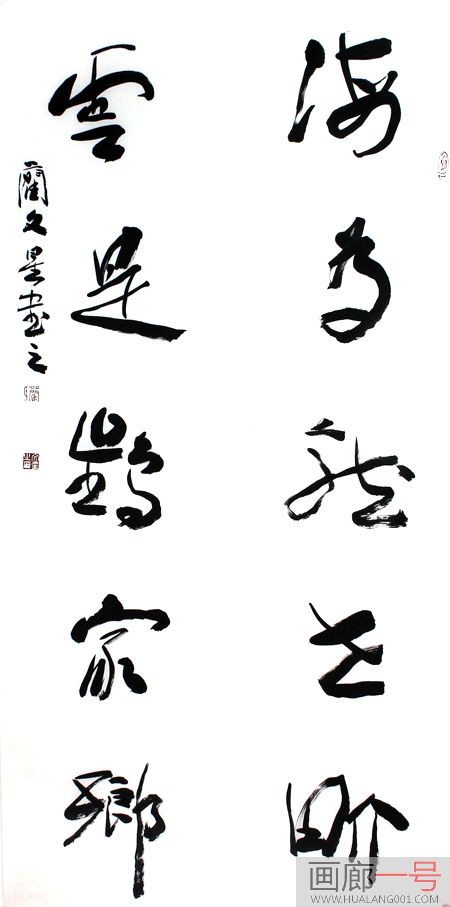 海為龍世界
雲是鶴家鄉
文星書之
画廊一号
WWW.HUALANG001.COM